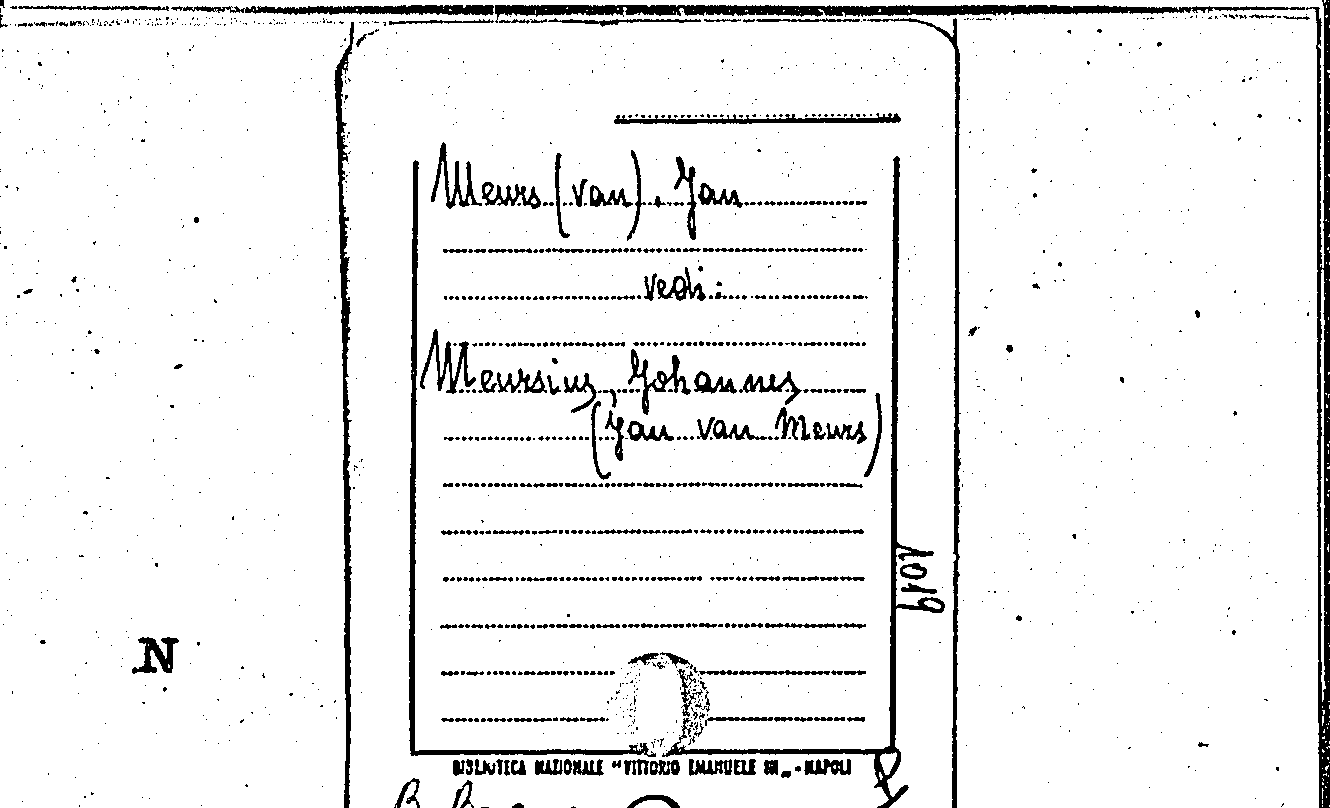 Meurs (van), Jan
vedi:
Meursius, Johannes
(Jan van Meurs)
N
BIBLIOTECA NAZIONALE "VITTORIO EMANUELE III" - NAPOLI